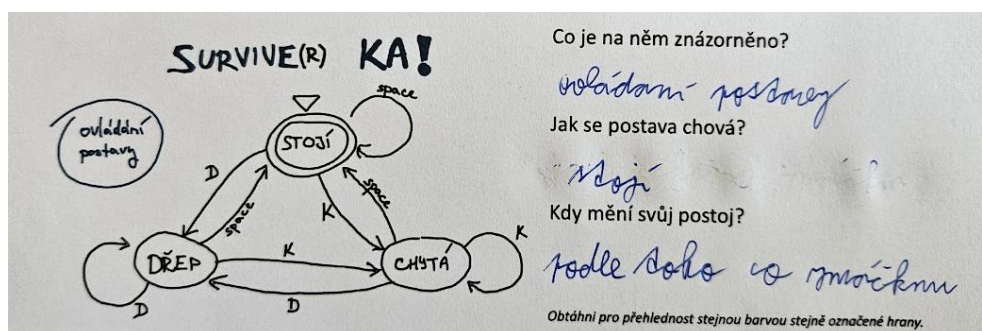 SURVIVE(R) KA!
ovládání
postavy
STOJÍ
space
D
space
K
space
DŘEP
K
CHYTÁ
K
D
D
Co je na něm znázorněno?
ovládaní postavy
Jak se postava chová?
stojí
Kdy mění svůj postoj?
podle toho co zmáčknu
Obtáhni pro přehlednost stejnou barvou stejně označené hrany.